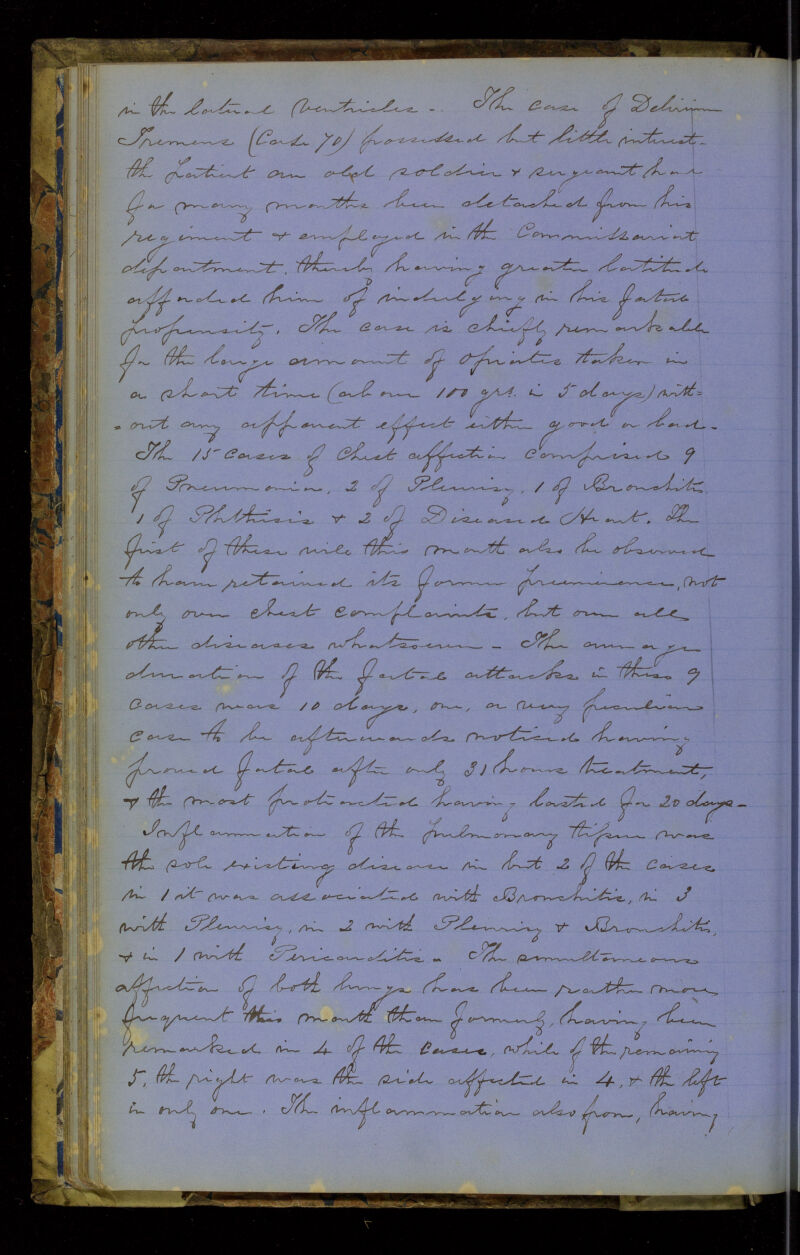 in the lateral ventricles - The case of Delirium
Tremens (Case 70) possessed but little interest -
the patient an old soldier & sergeant had
for many months been detached from his
regiment & employed in the Commissariat
department, thereby having greater latitude
afforded him of indulging in his fatal
propensity. The case is chiefly remarkable
for the large amount of opiates taken in
a short time (above 100 grs. in 5 days) with=
=out any apparent effect either good or bad -
The 15 cases of Chest affection comprised 9
of Pneumonia, 2 of Pleurisy, 1 of Bronchitis
1 of Phthisis & 2 of Diseased Heart. The
first of these will this month also be observed
to have retained its former preeminence, not
only over chest complaints, but over all
other diseases whatsoever - The average
duration of the fatal attacks in these 9
cases was 10 days, one, a very peculiar
case to be afterwards noticed having
proved fatal after only 31 hours treatment,
& the most protracted having lasted for 20 days -
Inflammation of the pulmonary tissue was
the sole existing disease in but 2 of the cases
in 1 it was associated with Bronchitis, in 3
with Pleurisy, in 2 with Pleurisy & Bronchitis,
& in 1 with Pericarditis - The simultaneous
affection of both lungs has been rather more
frequent this month than formerly, having been
remarked in 4 of the cases, while of the remaining
5, the right was the side affected in 4, & the left
in only one. The inflammation also from, having